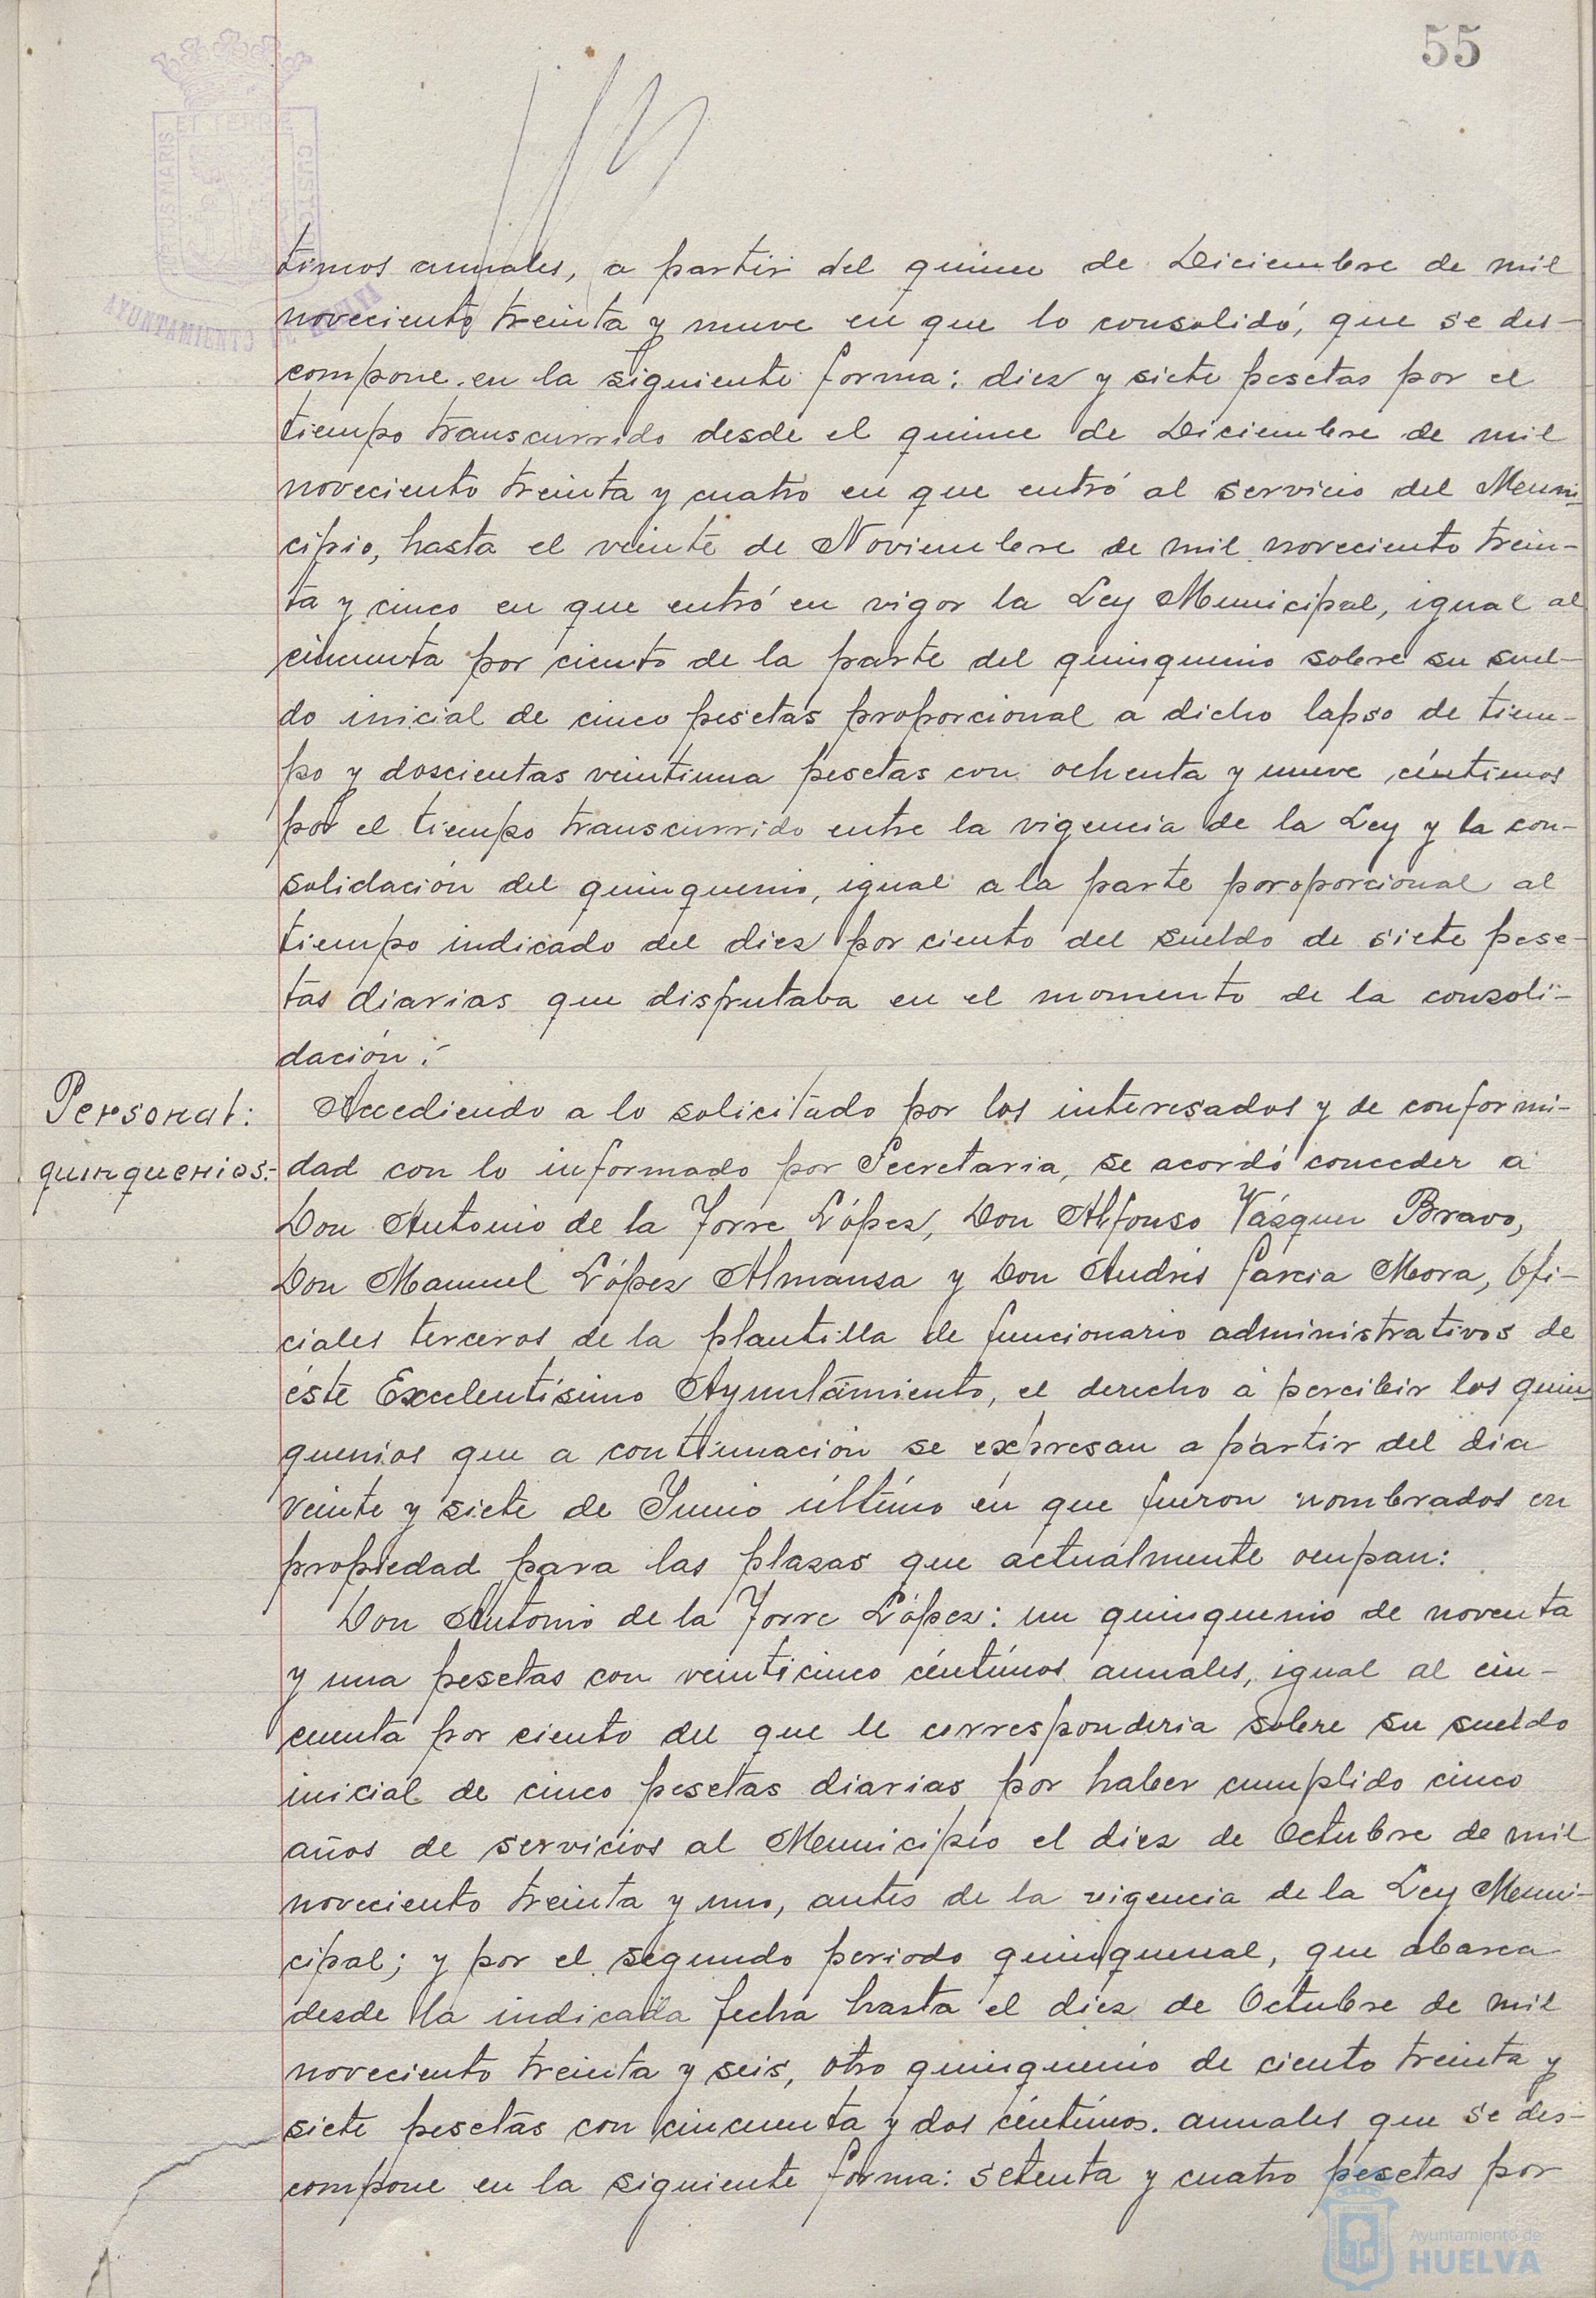 55
timos anuales, a partir del quince de Diciembre de mil
noveciento treinta y nueve en que lo consolidó, que se des-
compone en la siguiente forma: diez y siete pesetas por el
tiempo transcurrido desde el quince de Diciembre de mil
noveciento treinta y cuatro en que entró al servicio del Muni-
cipio, hasta el veinte de Noviembre de mil noveciento trein-
ta y cinco en que entró en vigor la Ley Municipal, igual al
cincuenta por ciento de la parte del quinquenio sobre su suel-
do inicial de cinco pesetas proporcional a dicho lapso de tiem-
po y doscientas veintiuna pesetas con ochenta y nueve céntimos
por el tiempo transcurrido entre la vigencia de la Ley y la con-
solidación del quinquenio, igual a la parte poroporcional al
tiempo indicado del diez por ciento del sueldo de siete pese-
tas diarias que disfrutaba en el momento de la consoli-
dación.-
Personal:
quinquenios.-
Accediendo a lo solicitado por los interesados y de conformi-
dad con lo informado por Secretaria, se acordó conceder a
Don Antonio de la Torre López, Don Alfonso Vázquez Bravo,
Don Manuel López Almansa y Don Andrés Garcia Mora, Ofi-
ciales terceros de la plantilla de funcionario administrativos de
éste Excelentísimo Ayuntamiento, el derecho a percibir los quin-
quenios que a continuación se expresan a partir del dia
veinte y siete de Junio último en que fueron nombrados en
propiedad para las plazas que actualmente ocupan:
Don Antonio de la Torre López: un quinquenio de noventa
y una pesetas con veinticinco céntimos anuales, igual al cin-
cuenta por ciento del que le corresponderia sobre su sueldo
inicial de cinco pesetas diarias por haber cumplido cinco
años de servicios al Municipio el diez de Octubre de mil
noveciento treinta y uno, antes de la vigencia de la Ley Muni-
cipal; y por el segundo periodo quinquenal, que abarca
desde la indicada fecha hasta el diez de Octubre de mil
noveciento treinta y seis, otro quinquenio de ciento treinta y
siete pesetas con cincuenta y dos céntimos. anuales que se des-
compone en la siguiente forma: setenta y cuatro pesetas por
AYUNTAMIENTO DE HUELVA
Ayuntamiento de
HUELVA